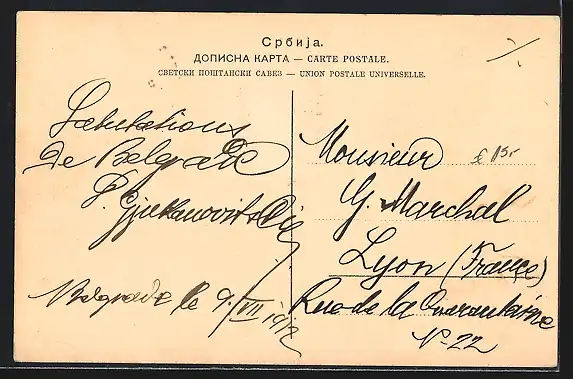 Србија.
ДОПИСНА КАРТА — CARTE POSTALE.
СВЕТСКИ ПОШТАНСКИ САВЕЗ — UNION POSTALE UNIVERSELLE.
Salutations
de Belgrade
Belgrade le 9/VII 1912
Monsieur
G. Marchal
Lyon (France)
Rue de la Quarantaine
No 22
£ 15.-